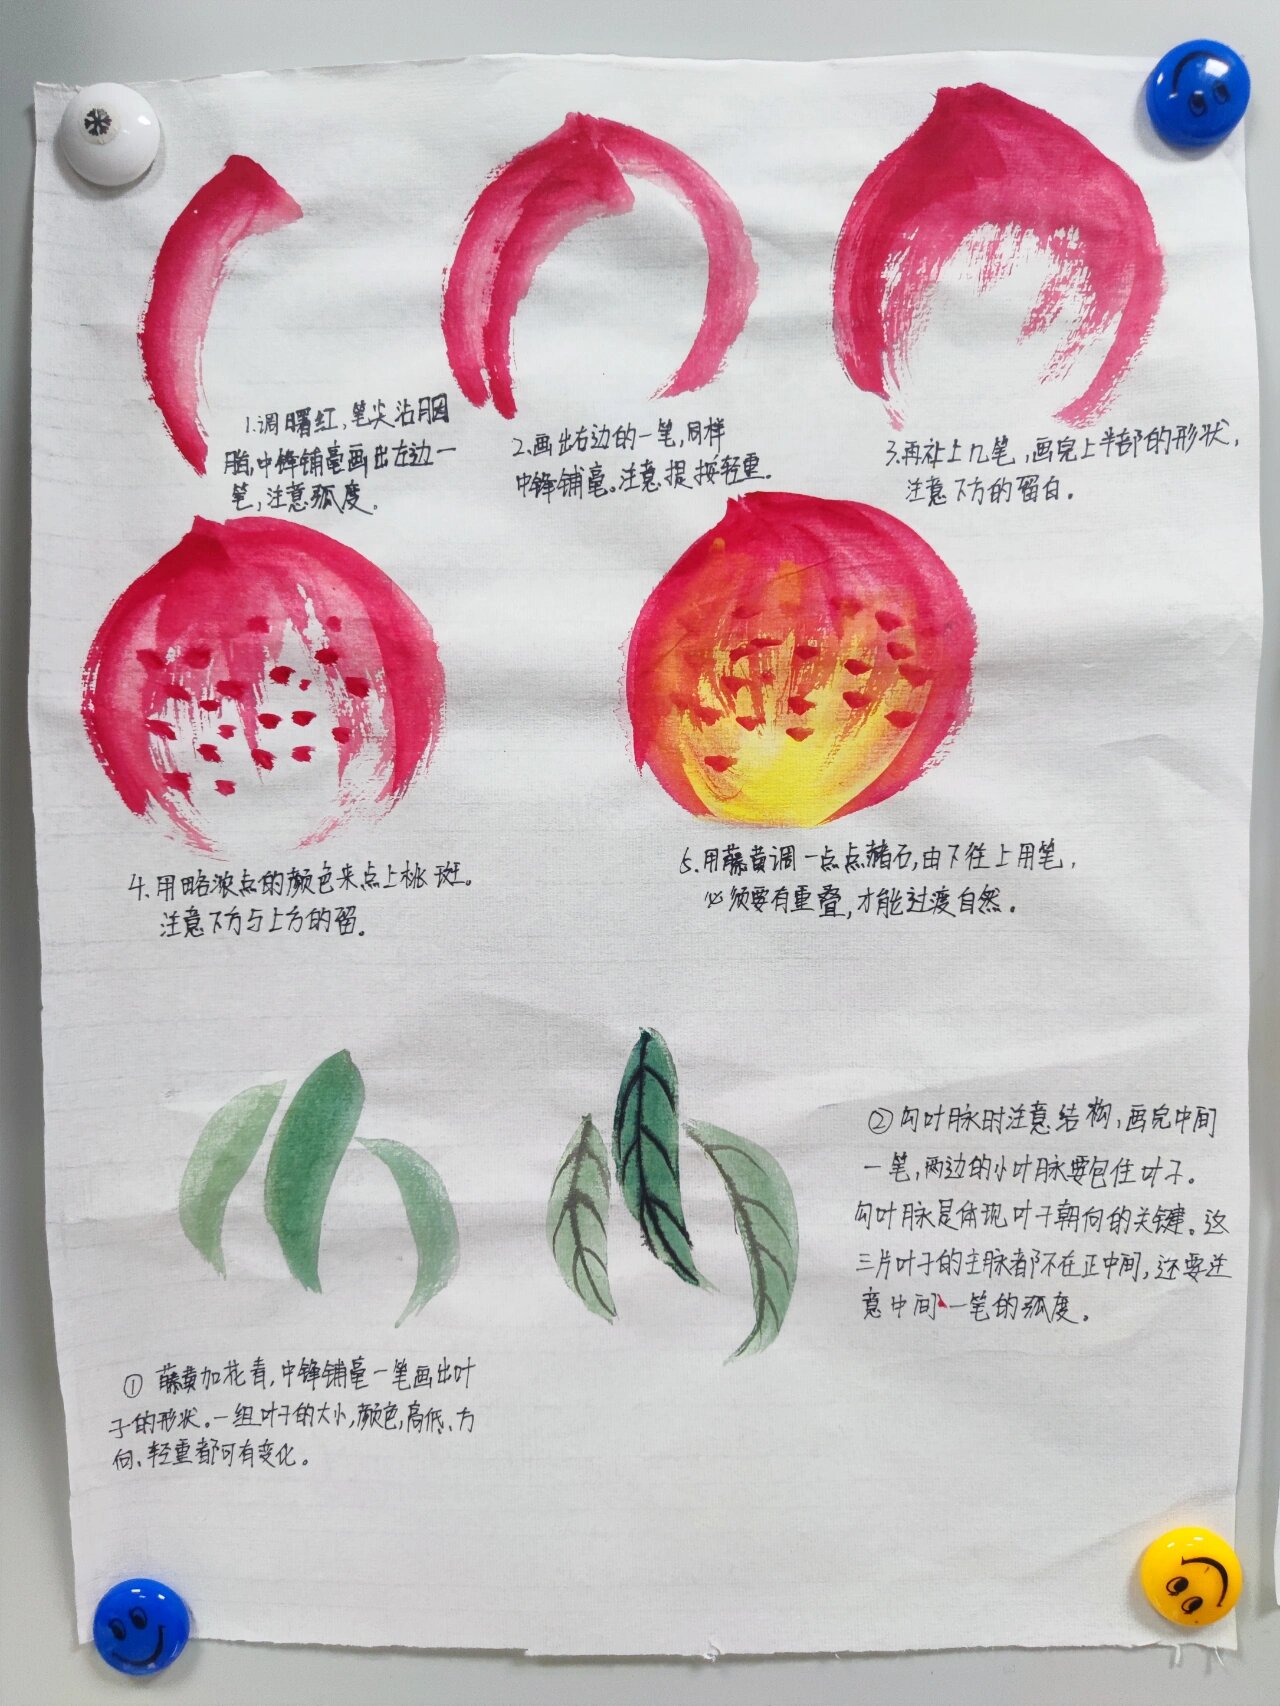 1.调曙红,笔尖沾胭
脂,中锋铺毫画出左边一
笔,注意弧度.
2.画出右边的一笔,同样
中锋铺毫。注意提按轻重.
3.再补上几笔,画完上半部的形状,
注意下方的留白.
4.用略浓点的颜色来点上桃斑.
注意下方与上方的留.
5.用藤黄调一点点赭石,由下往上用笔,
必须要有重叠,才能过渡自然.
① 藤黄加花青,中锋铺毫一笔画出叶
子的形状.一组叶子的大小,颜色,高低、方
向、轻重都可有变化.
②勾叶脉时注意结构,画完中间
一笔,两边的小叶脉要包住叶子.
勾叶脉是体现叶子朝向的关键.这
三片叶子的主脉都不在正中间,还要注
意中间一笔的弧度.